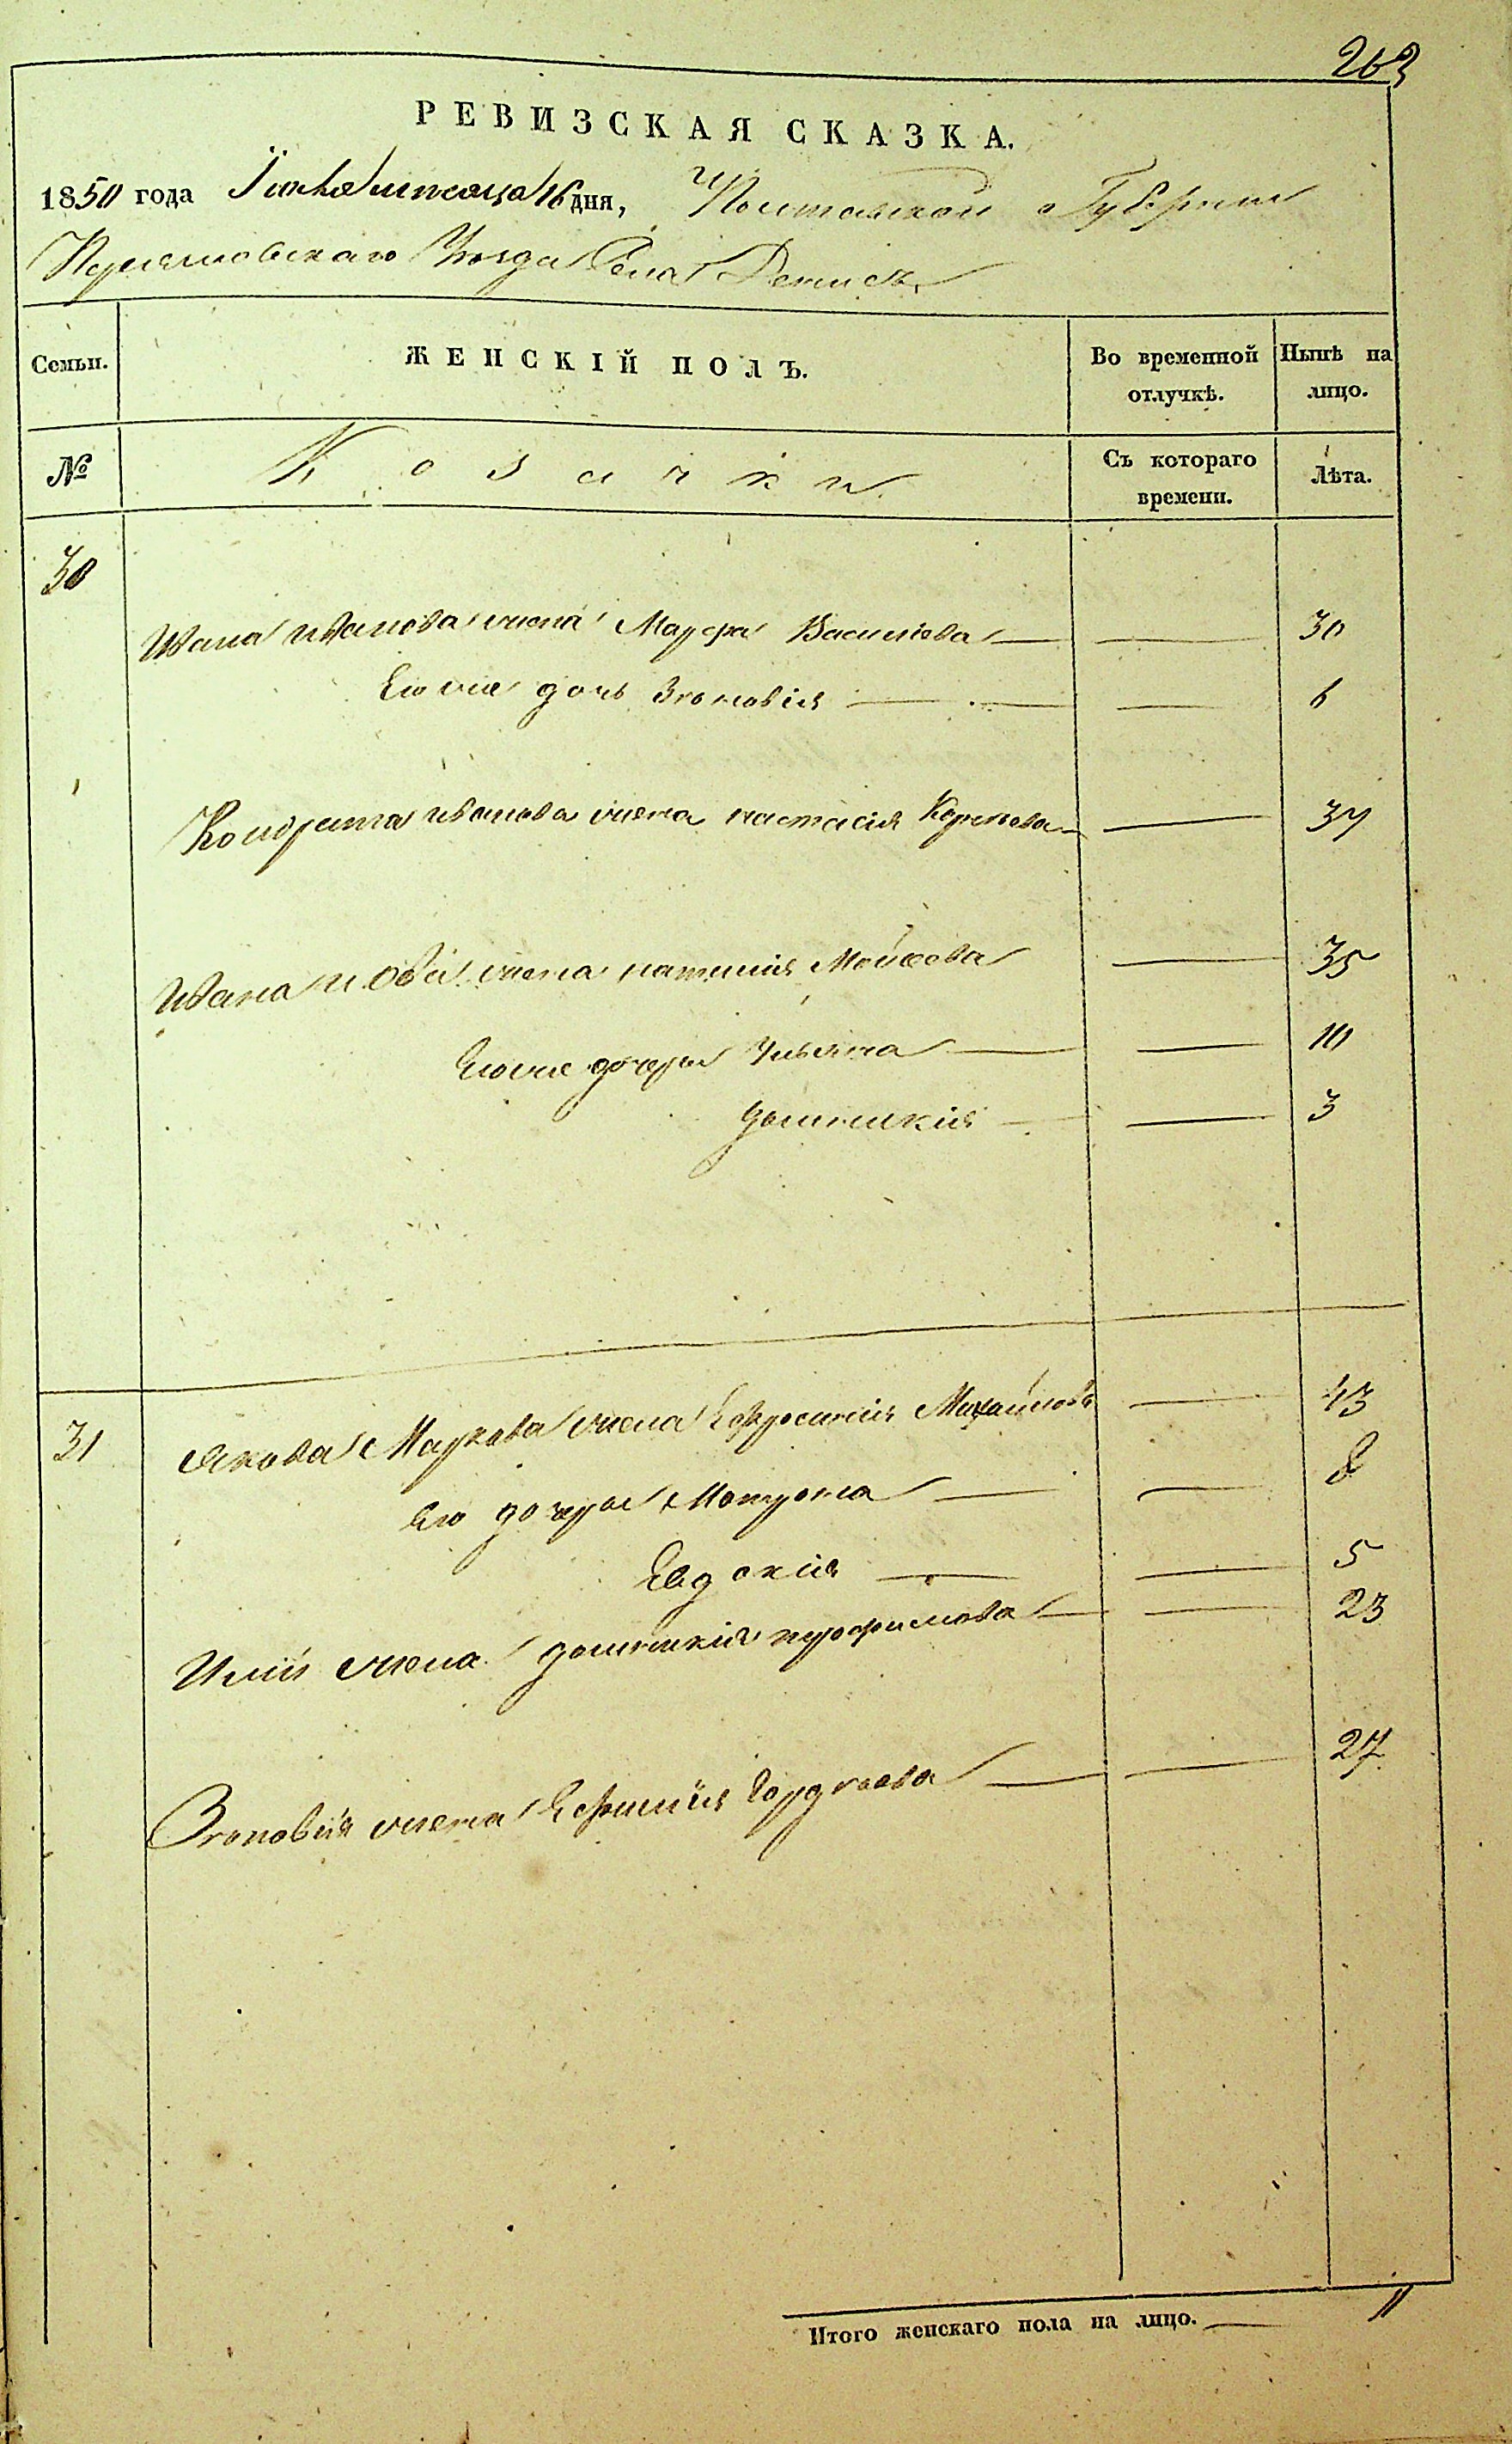 263
РЕВИЗСКАЯ СКАЗКА.
1850 года Іюля месяца 16 дня, Полтавской Губернии
Переяславского Уезда Села Демись
Семьи. ЖЕНСКІЙ ПОЛЪ. Во временной отлучкѣ. Нынѣ на лицо.
№ Козачки Съ котораго времени. Лѣта.
30
Ивана Иванова жена Марфа Василіева — — 30
Его же дочь Зѣновія — — 6
Кондрата Иванова жена настасія Карпова — — 37
Ивана жена Моисеева — 35
Его же дочеры Ульяна — — 10
домникія — — 3
31 Якова Маркова жена Ефросинія Михайлова — 43
его дочеры Мотрона — — 8
Евдокия — — 5
Иліи жена домникія трофимова — — 23
Зѣновія жена Ефимія Гордѣева — — 27
Итого женскаго пола на лицо. — 11